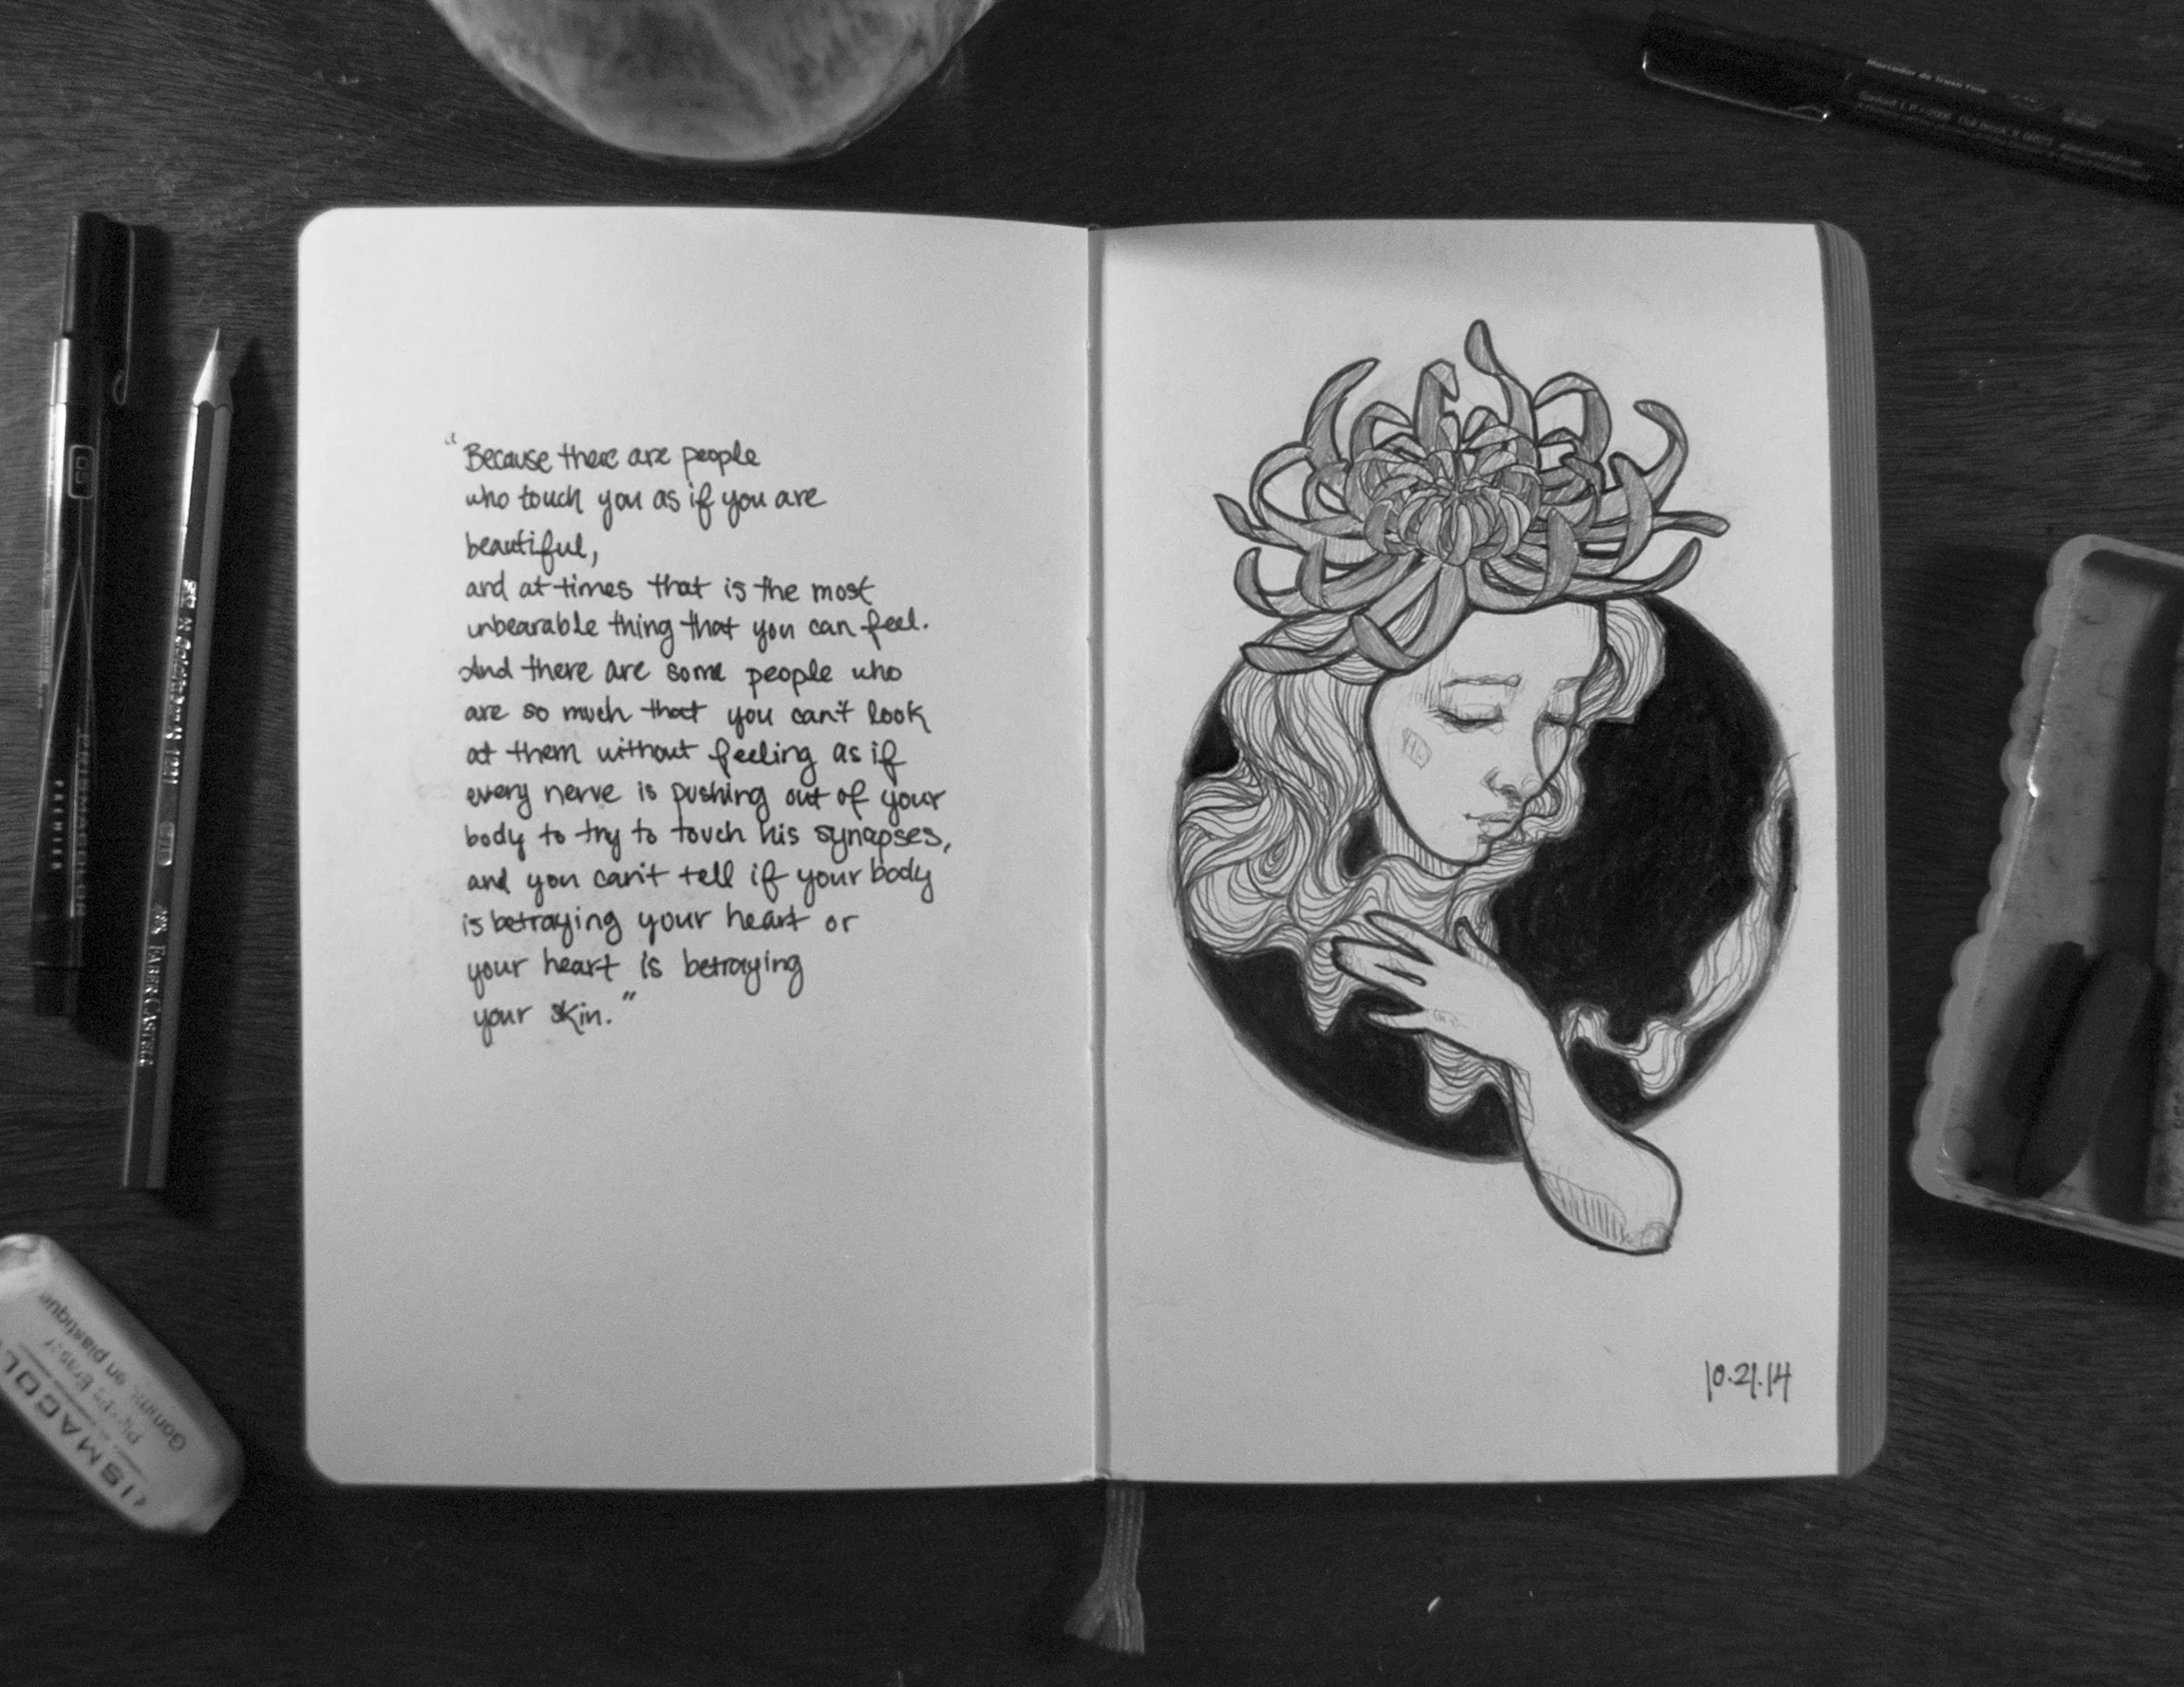 "Because there are people
who touch you as if you are
beautiful,
and at times that is the most
unbearable thing that you can feel.
And there are some people who
are so much that you can't look
at them without feeling as if
every nerve is pushing out of your
body to try to touch his synapses,
and you can't tell if your body
is betraying your heart or
your heart is betraying
your skin."
10.21.14
FABER-CASTELL
05
ISMACOL
Gomme en plastique